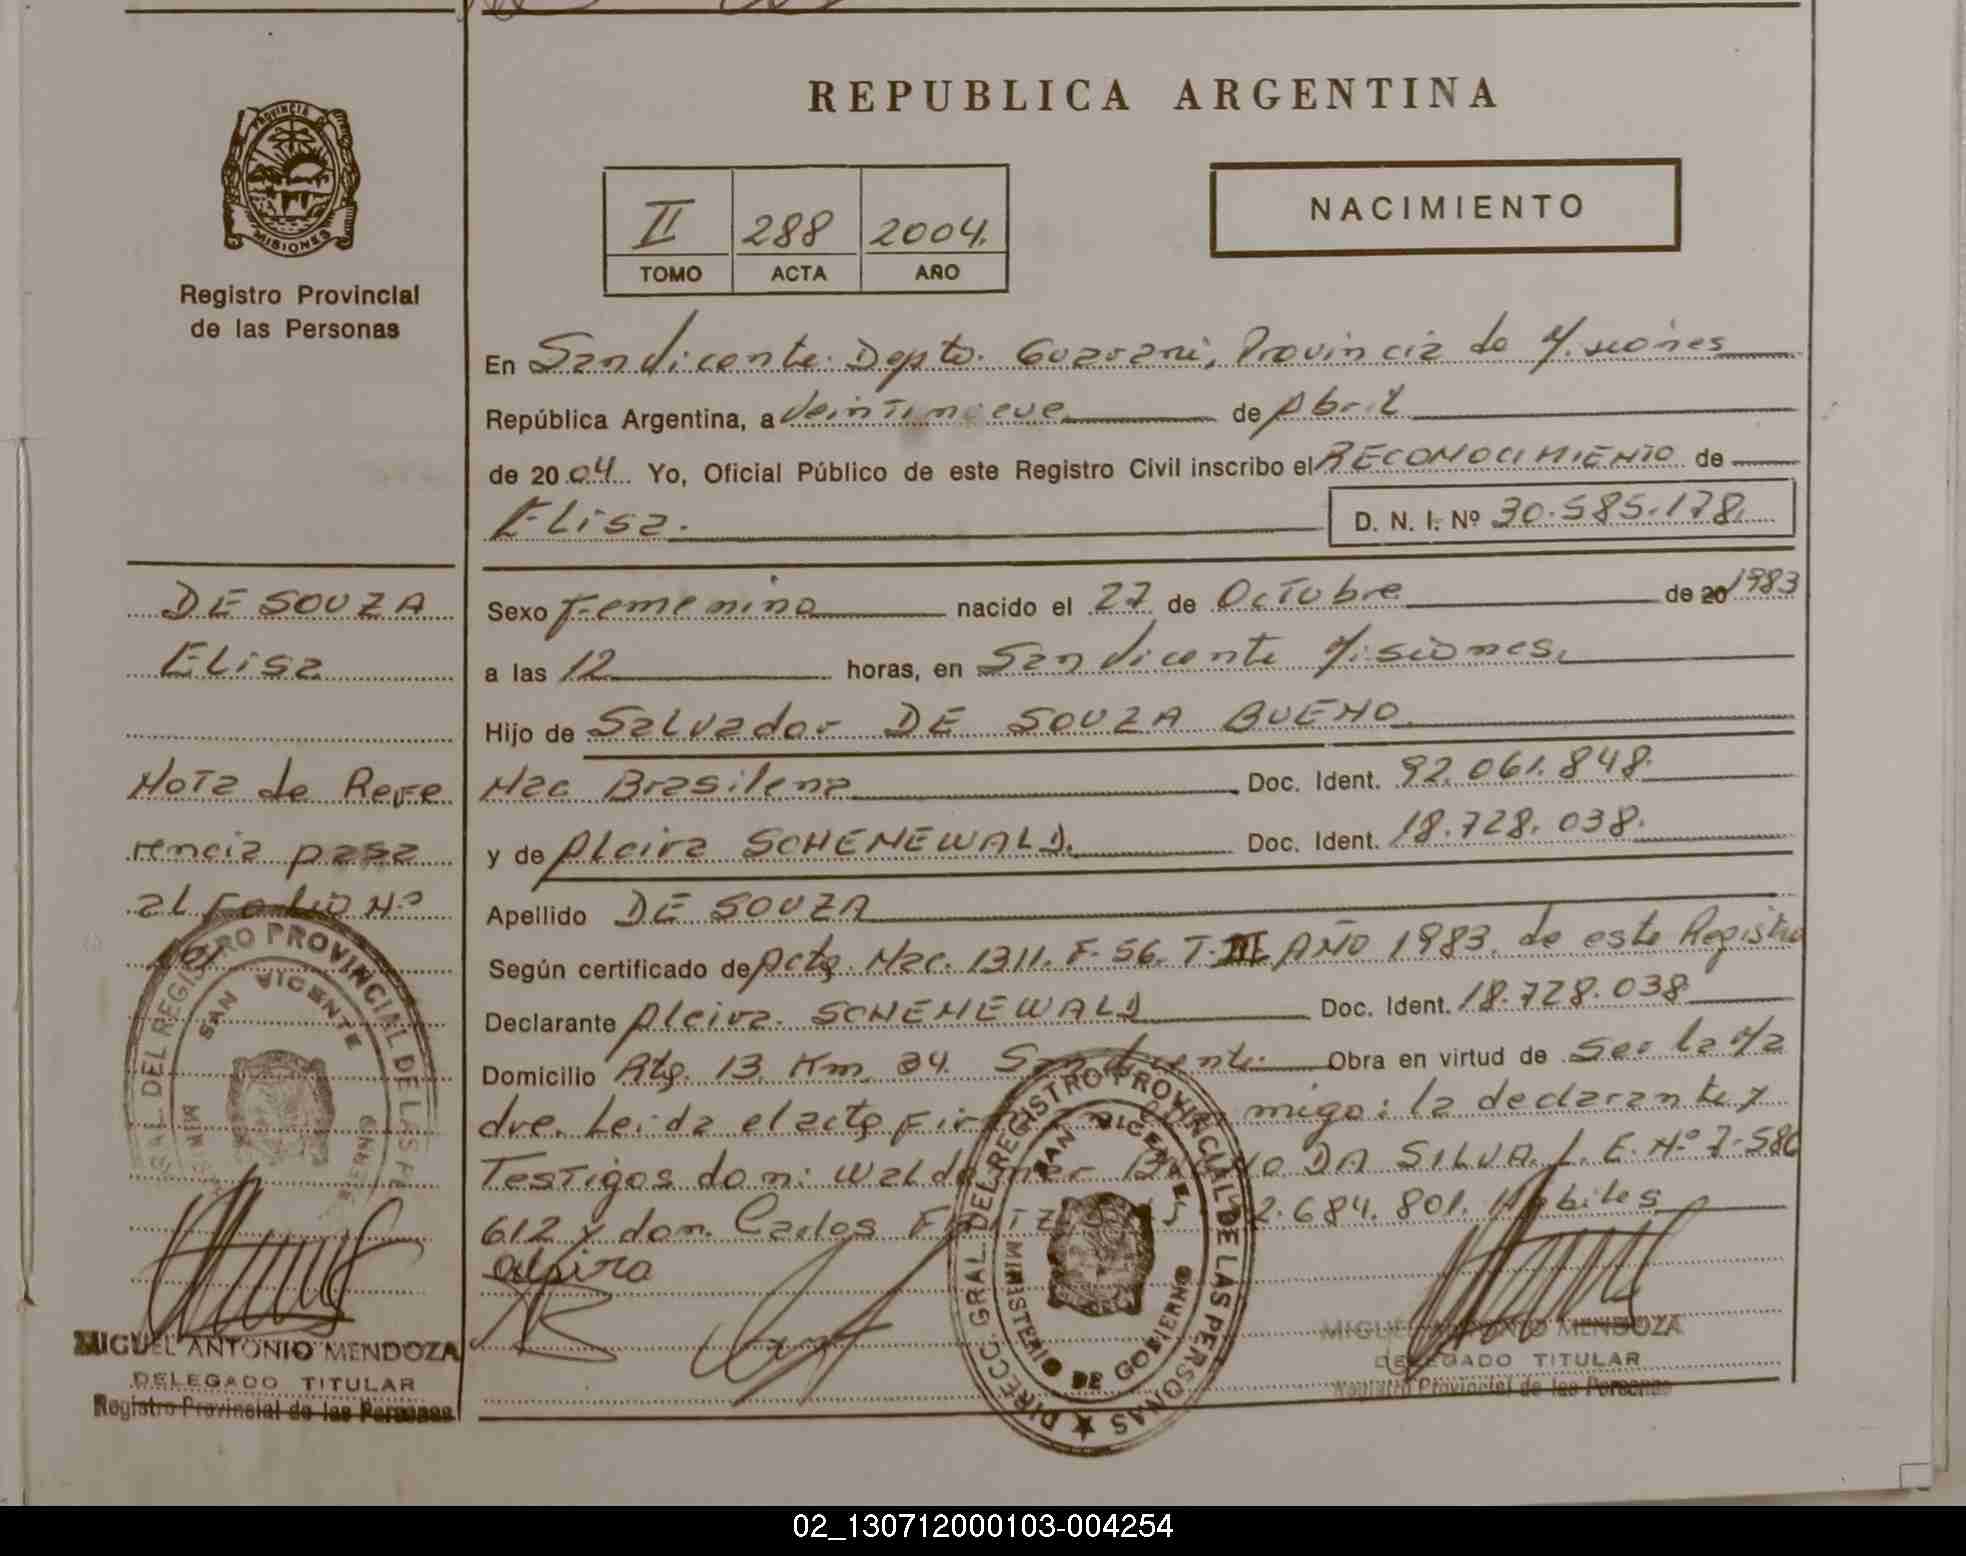 REPUBLICA ARGENTINA
PROVINCIA DE
MISIONES
Registro Provincial
de las Personas
II 288 2004.
TOMO ACTA AÑO
NACIMIENTO
En San Vicente. Depto. Guarani, Provincia de Misiones
República Argentina, a Veintinueve de Abril
de 2004 Yo, Oficial Público de este Registro Civil inscribo el RECONOCIMIENTO de
Elisa. D. N. I. Nº 30.585.178.
DE SOUZA
Elisa
Nota de Refe
rencia pasa
al Folio Nº
Sexo Femenino nacido el 27 de Octubre de 20 1983
a las 12 horas, en San Vicente Misiones.
Hijo de Salvador DE SOUZA BUENO
Nac Brasilena Doc. Ident. 92.061.848.
y de Alcira SCHENEWALD. Doc. Ident. 18.728.038.
Apellido DE SOUZA
Según certificado de Acta. Nac. 1311. F. 56. T. III AÑO 1983. de este Registro
Declarante Alcira. SCHENEWALD Doc. Ident. 18.728.038
Domicilio Rta. 13 Km. 34. San Vicente. Obra en virtud de Ser la Ma
dre. Leida el acta migo: la declarante y
Testigos don: DA SILVA. L. E. Nº 7.586
612 y don. Carlos 2.684.801. Habiles
alsira
DIRECC. GRAL. DEL REGISTRO PROVINCIAL DE LAS PERSONAS
SAN VICENTE
MINISTERIO DE GOBIERNO
GRAL DEL REGISTRO PROVINCIAL DE LAS
SAN VICENTE
MIGUEL ANTONIO MENDOZA
DELEGADO TITULAR
Registro Provincial de las Personas
MIGUEL ANTONIO MENDOZA
DELEGADO TITULAR
Registro Provincial de las Personas
02_130712000103-004254